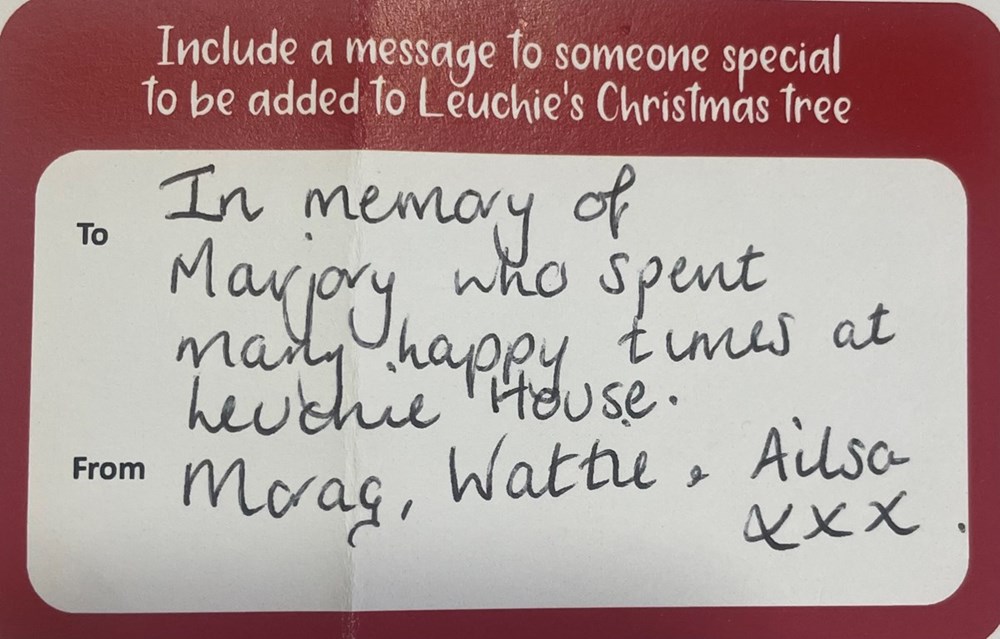 Include a message to someone special
to be added to Leuchie's Christmas tree
To
In memory of
Marjory who spent
many happy times at
Leuchie House.
From
Morag, Wattie & Ailsa
xxx